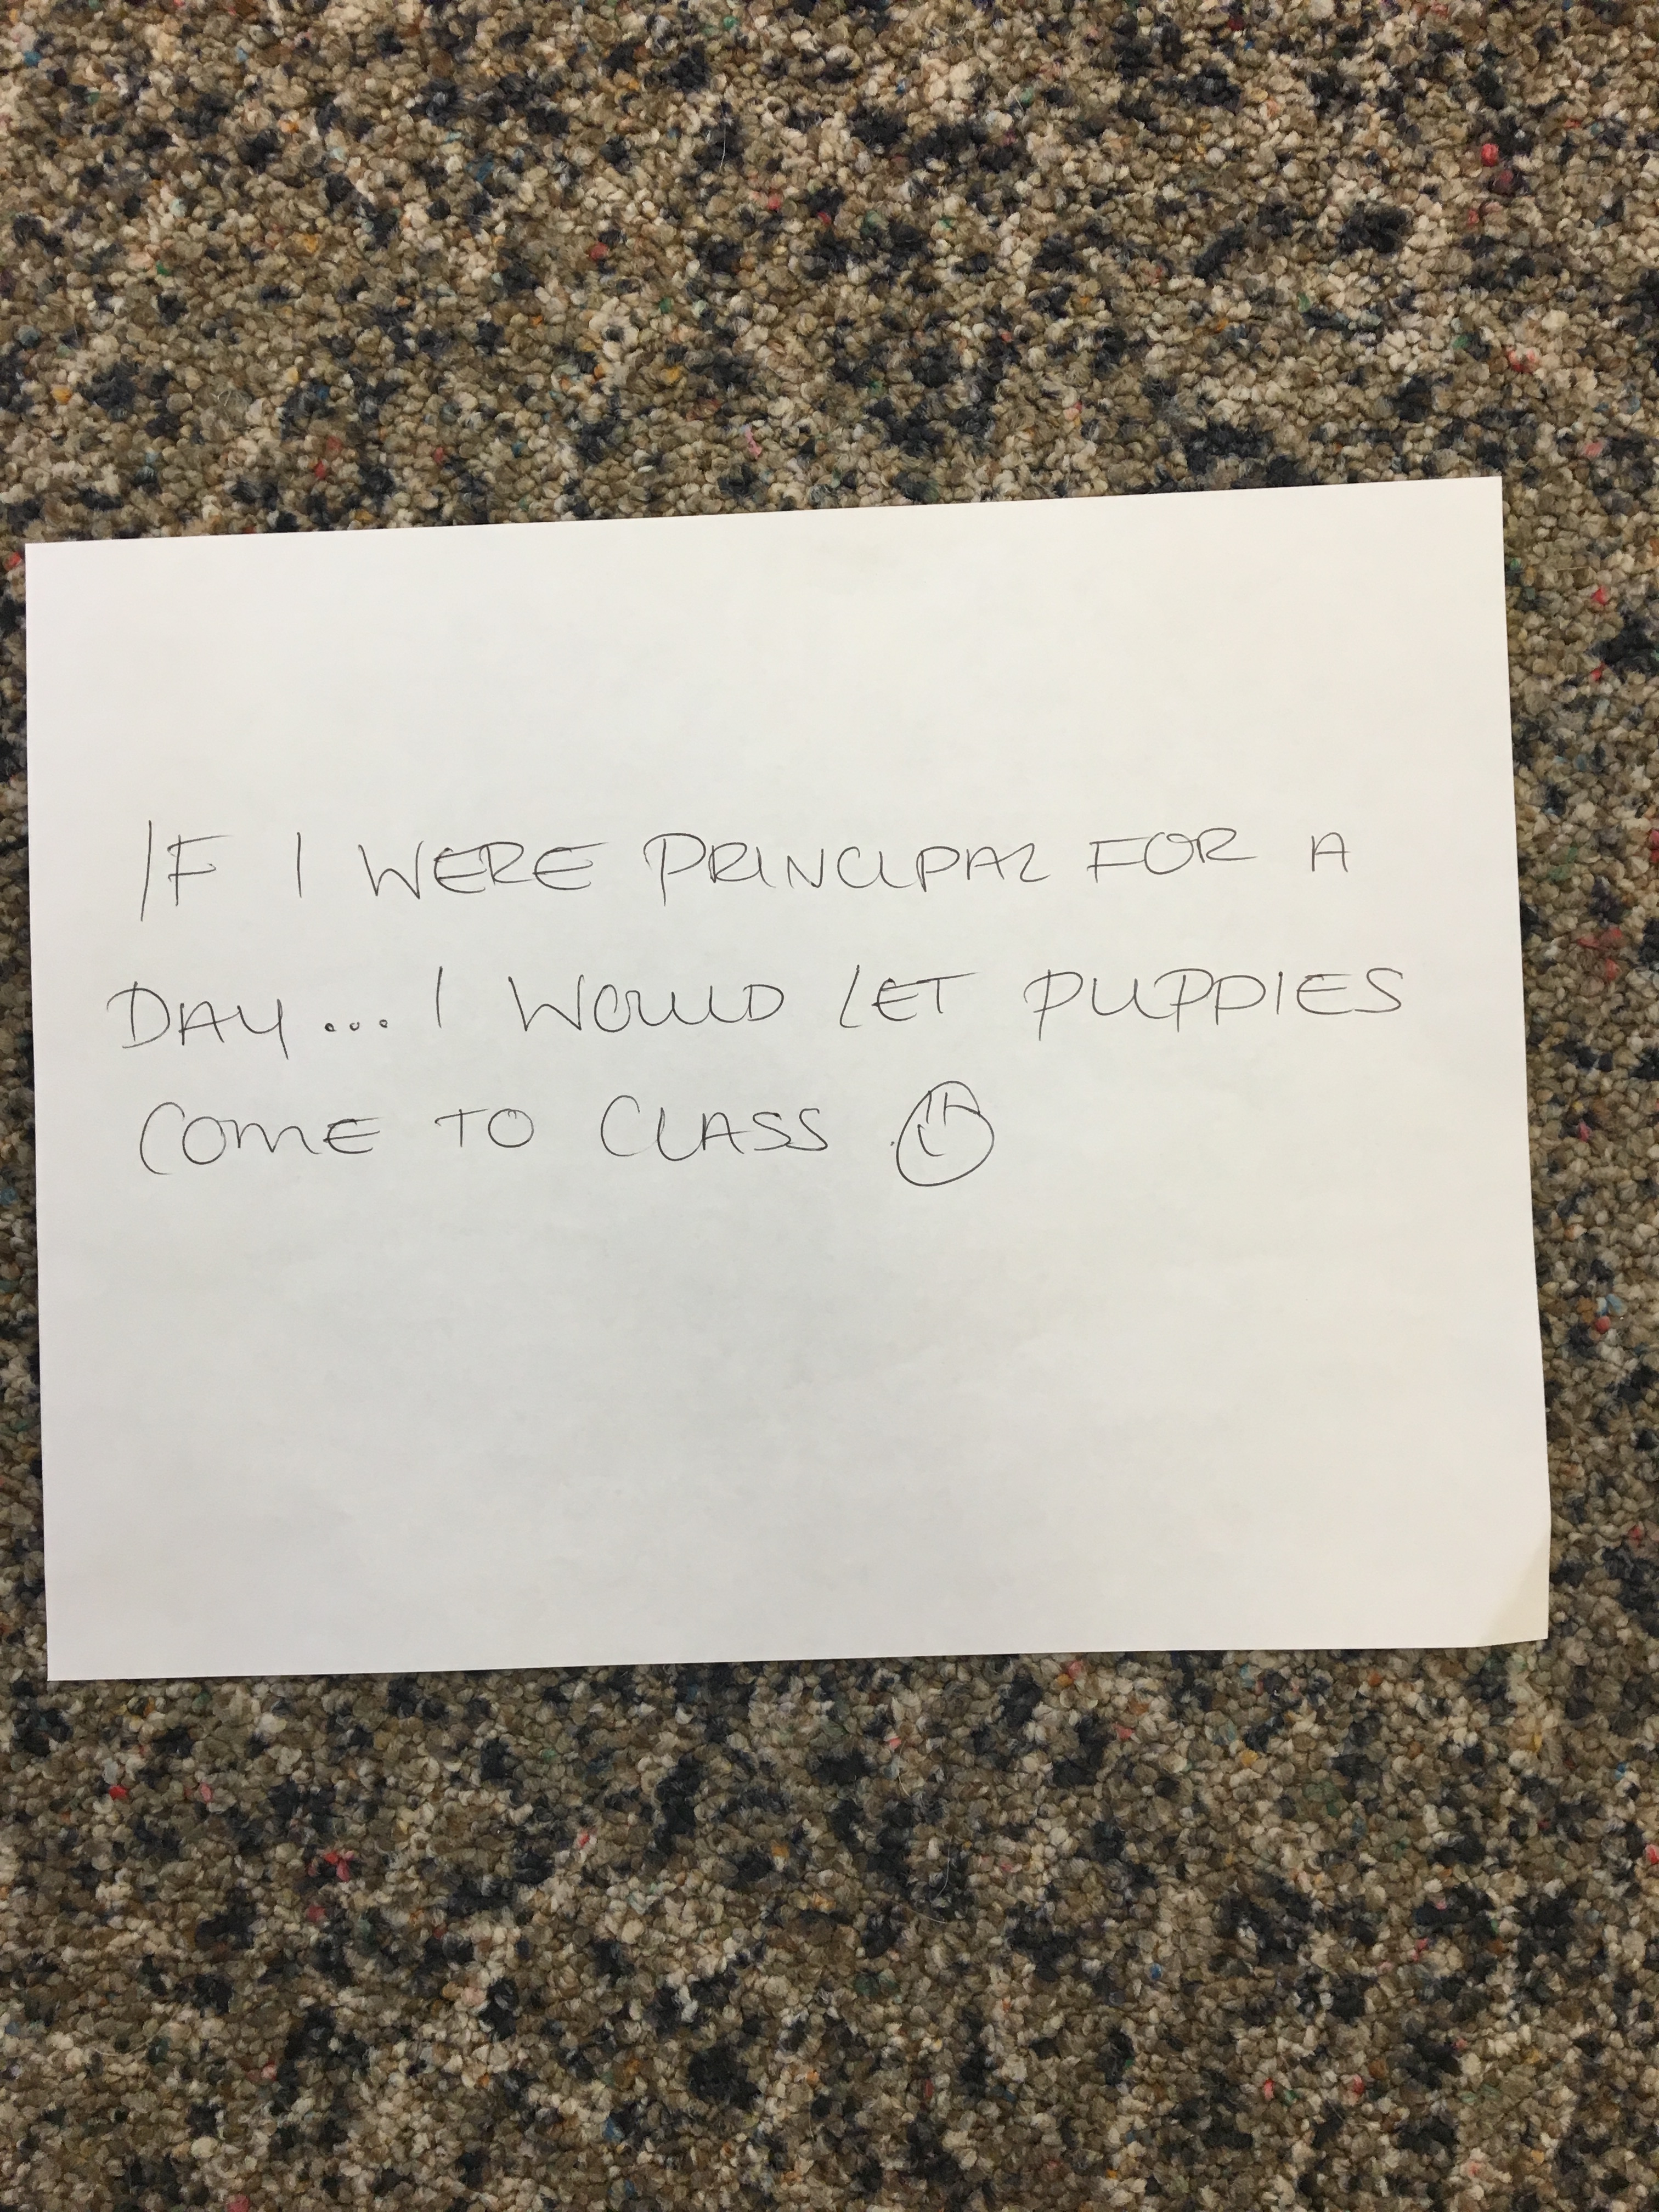 IF I WERE PRINCIPAL FOR A
DAY... I WOULD LET PUPPIES
COME TO CLASS